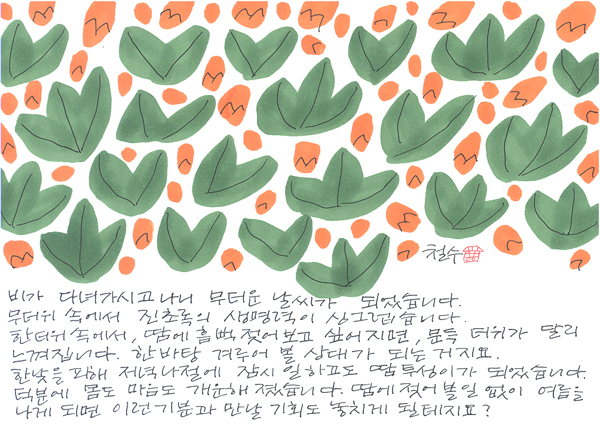 철수
비가 다녀가시고 나니 무더운 날씨가 되었습니다.
무더위 속에서 진초록의 생명력이 싱그럽습니다.
한더위 속에서, 땀에 흠뻑 젖어보고 싶어지면, 문득 더위가 달리
느껴집니다. 한바탕 겨루어 볼 상대가 되는 거지요.
한낮을 피해 저녁나절에 잠시 일하고도 땀투성이가 되었습니다.
덕분에 몸도 마음도 개운해졌습니다. 땀에 젖어 볼 일 없이 여름을
나게 되면 이런 기분과 만날 기회도 놓치게 될테지요?